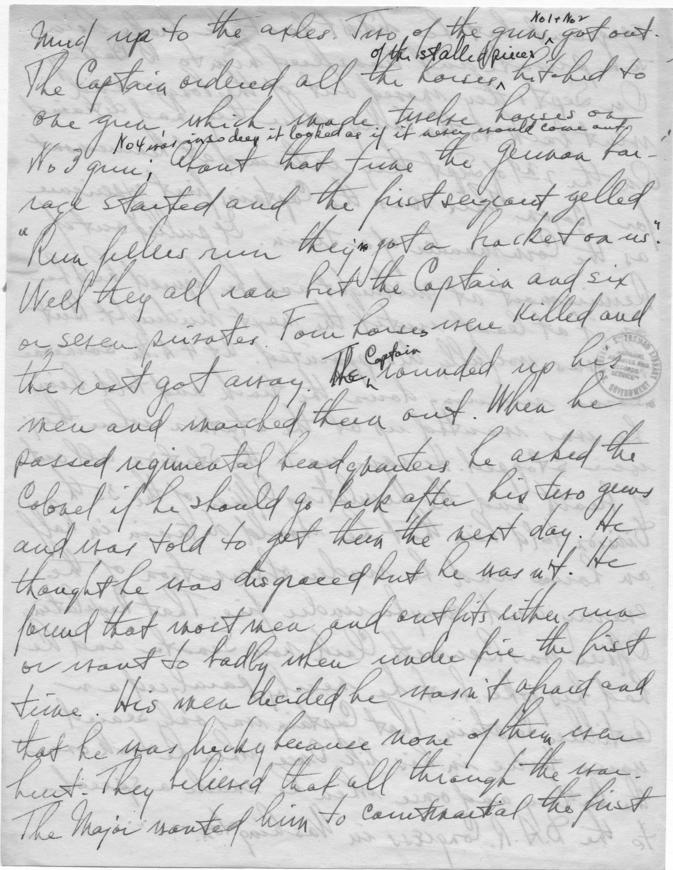 No1 + No2
mud up to the axles. Two of the guns got out.
of the stalled pieces
The Captain ordered all the horses hitched to
one gun, which made twelve horses on
No 4 was in so deep it looked as if it never would come out
No 3 gun; About that time the German bar-
rage started and the first sergeant yelled
"Run fellers run they've got a bracket on us".
Well they all ran but the Captain and six
or seven privates. Four horses were killed and
Captain
the rest got away. The rounded up his
men and marched them out. When he
passed regimental headquarters he asked the
Colonel if he should go back after his two guns
and was told to get them the next day. He
thought he was disgraced but he wasn't. He
found that most men and outfits either run
or want to badly when under fire the first
time. His men decided he wasn't afraid and
that he was lucky because none of them were
hurt. They believed that all through the war.
The Major wanted him to courtmartial the first
TRUMAN LIBRARY
GOVERNMENT